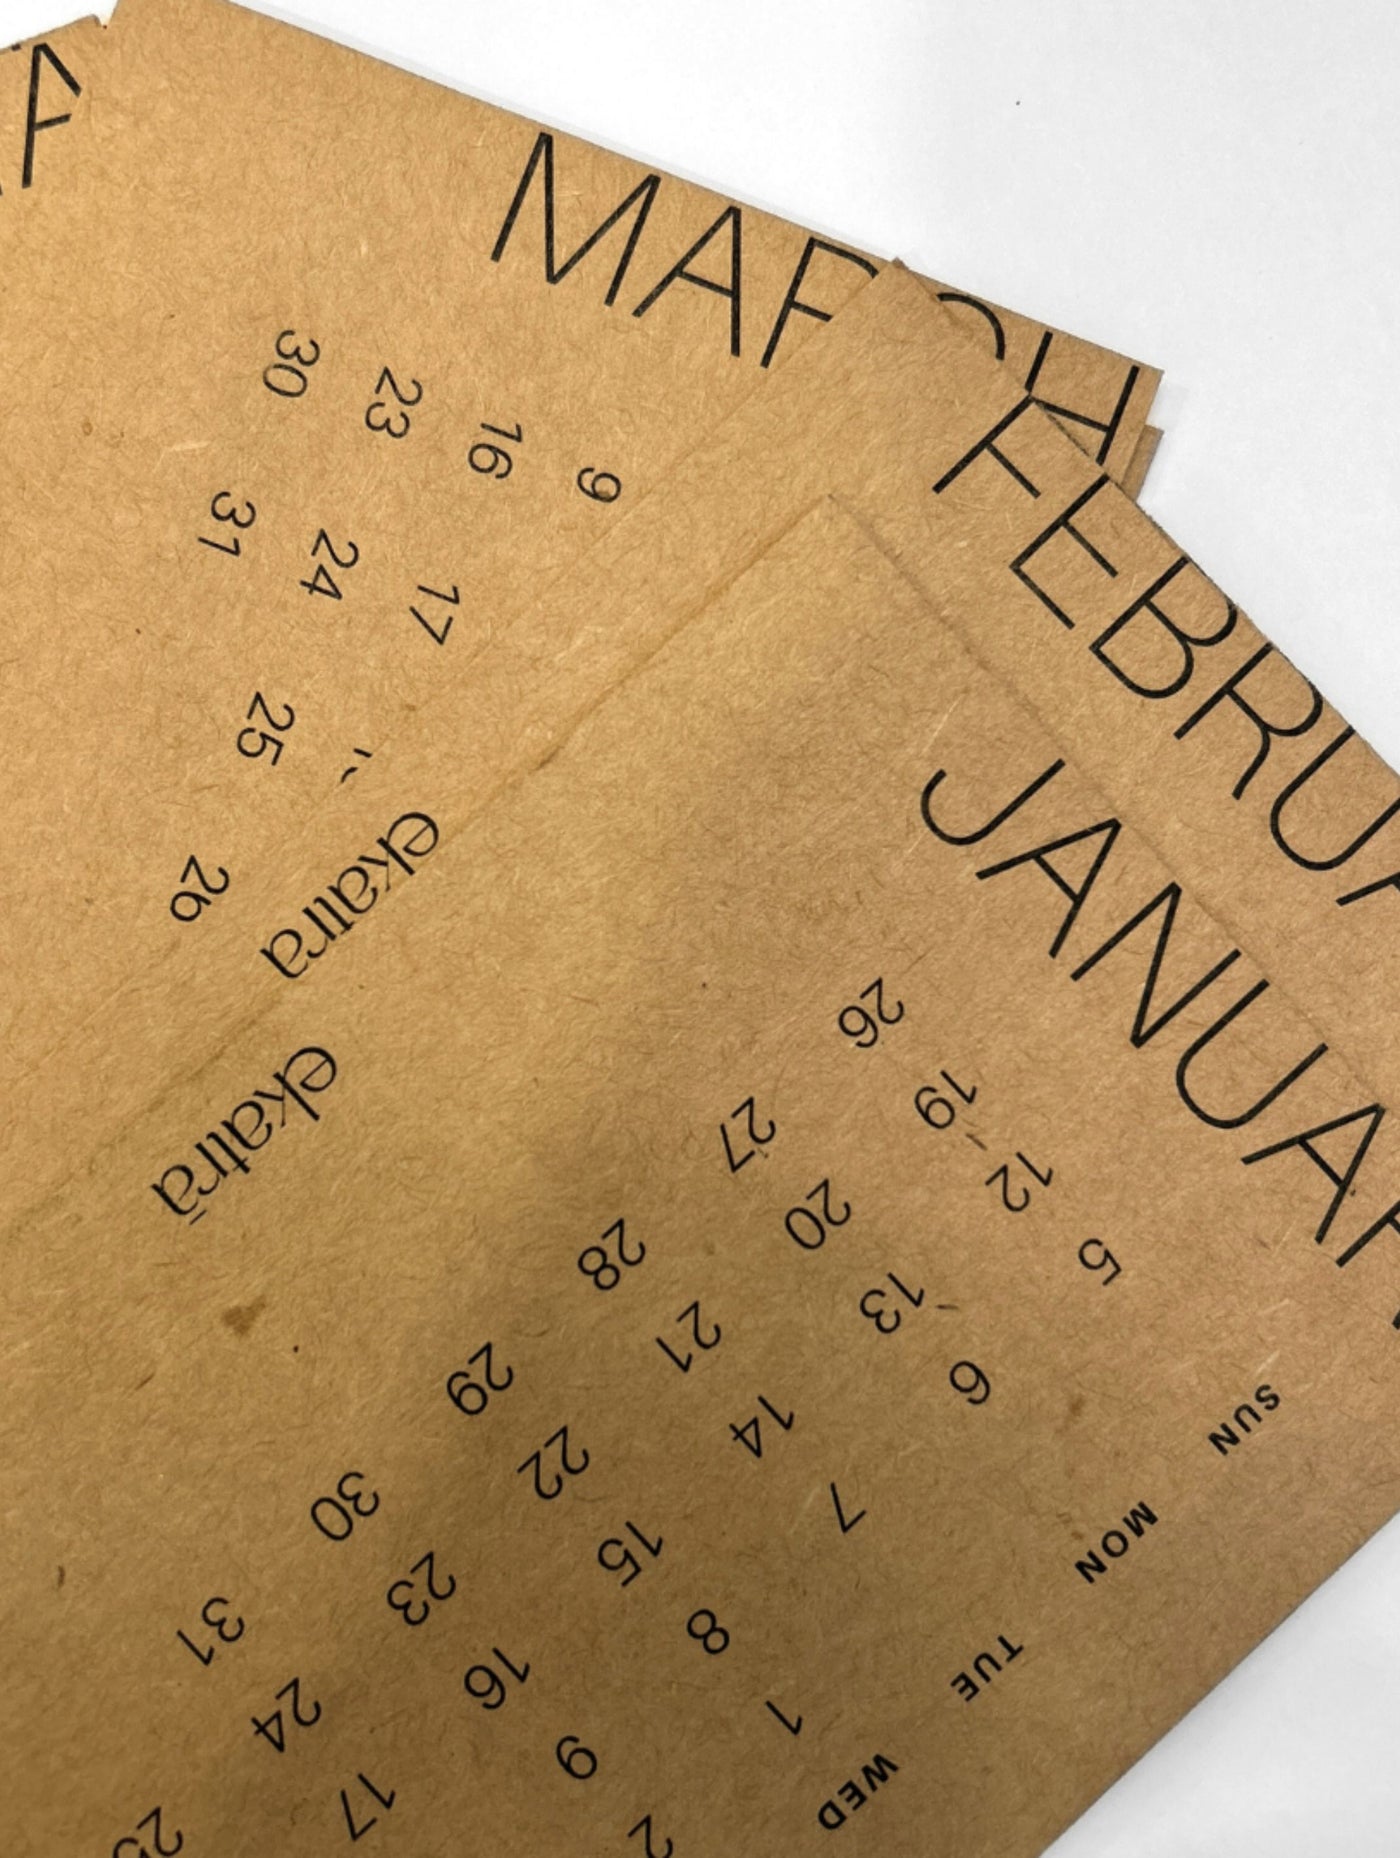 MARCH
9
16 17
23 24 25 26
30 31
ekatra
FEBRUA
JANUAR
SUN MON TUE WED
1 2
5 6 7 8 9
12 13 14 15 16 17
19 20 21 22 23 24 25
26 27 28 29 30 31
ekatrā